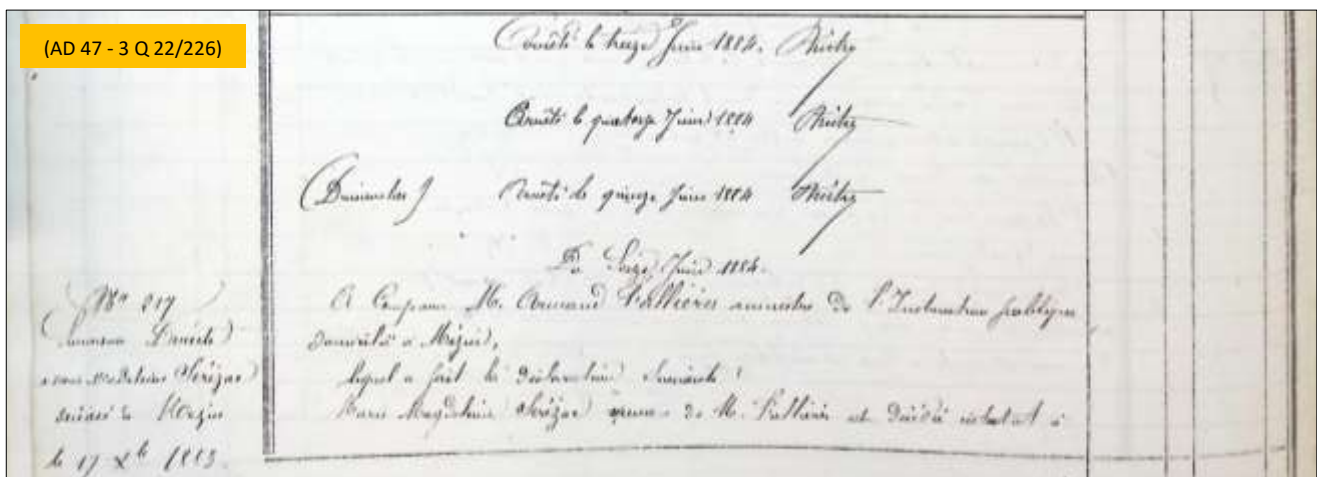 (AD 47 - 3 Q 22/226)
Arrêté le treize Juin 1884.
Arrêté le quatorze Juin 1884
(Dimanche) Arrêté le quinze Juin 1884
Du Seize Juin 1884.
A Comparu M. Armand Fallières ministre de l'Instruction publique
domicilié à Mézin,
lequel a fait la déclaration suivante :
Marie Magdeleine Sérizac épouse de M. Fallières est décédée intestat à
Nº 317
Succession Directe
Magdeleine Sérizac
décédée à Mézin
le 17 Xbre 1883.